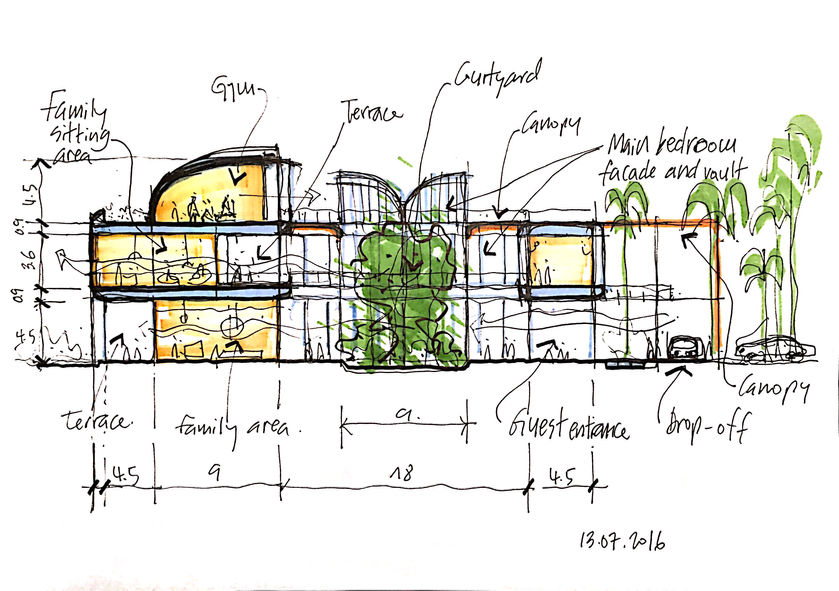 Gym
Courtyard
Family
sitting
area
Terrace
Canopy
Main bedroom
facade and vault
4.5
0.9
3.6
0.9
4.5
Terrace.
family area.
9.
Guest entrance
Drop-off
Canopy
4.5
9
18
4.5
13.07.2016